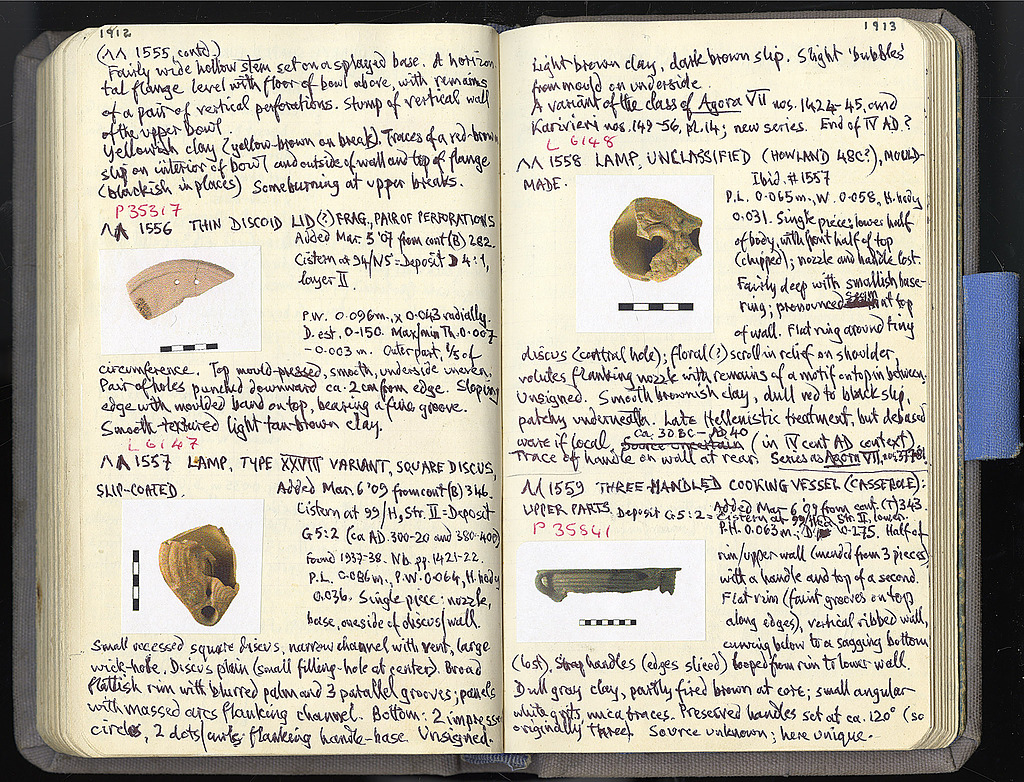 1912
(ΛΛ 1555, contd)
Fairly wide hollow stem set on a splayed base. A horizon-
tal flange level with floor of bowl above, with remains
of a pair of vertical perforations. Stump of vertical wall
of the upper bowl.
Yellowish clay (yellow-brown on break). Traces of a red-brown
slip on interior of bowl and outside of wall and top of flange
(blackish in places) Some burning at upper breaks.
P 35317
ΛΛ 1556 THIN DISCOID LID(?) FRAG., PAIR OF PERFORATIONS
Added Mar. 5 '07 from cont (B) 282.
Cistern at 94/N5 = Deposit D 4:1,
layer II.
P.W. 0.096m., x 0.043 radially.
D. est. 0.150. Max/min Th. 0.007
- 0.003 m. Outer part, 1/5 of
circumference. Top mould-pressed, smooth, underside uneven.
Pair of holes punched downward ca. 2 cm from edge. Sloping
edge with moulded band on top, bearing a fine groove.
Smooth-textured light tan-brown clay.
L 6147
ΛΛ 1557 LAMP, TYPE XXVIII VARIANT, SQUARE DISCUS,
SLIP-COATED.
Added Mar. 6 '09 from cont (B) 346.
Cistern at 99/H, Str. II = Deposit
G 5:2 (ca AD. 300-20 and 380-400)
Found 1937-38. Nb. pp. 1421-22.
P.L. 0.086m., P.W. 0.064, H. body
0.036. Single piece: nozzle,
base, one side of discus/wall.
Small recessed square discus, narrow channel with vent, large
wick-hole. Discus plain (small filling-hole at center). Broad
flattish rim with blurred palm and 3 parallel grooves; panels
with massed arcs flanking channel. Bottom: 2 impressed
circles, 2 dots/ flanking handle-base. Unsigned.
1913
Light brown clay, dark brown slip. Slight 'bubbles'
from mould on underside.
A variant of the class of Agora VII nos. 1424-45, and
Karivieri nos. 149-56, pl. 14; new series. End of IV AD?
L 6148
ΛΛ 1558 LAMP, UNCLASSIFIED (HOWLAND 48C?), MOULD-
MADE.
Ibid. #1557
P.L. 0.065m., W. 0.058, H. body
0.031. Single piece: lower half
of body, with front half of top
(chipped); nozzle and handle lost.
Fairly deep with smallish base-
ring; pronounced seam at top
of wall. Flat ring around tiny
discus (central hole); floral(?) scroll in relief on shoulder,
volutes flanking nozzle with remains of a motif on top in between.
Unsigned. Smooth brownish clay, dull red to black slip,
patchy underneath. Late Hellenistic treatment, but debased
ware if local, ca. 30 BC - AD 40 source uncertain (in IV cent AD context).
Trace of handle on wall at rear. Series as Agora VII,
ΛΛ 1559 THREE-HANDLED COOKING VESSEL (CASSEROLE):
UPPER PARTS. Deposit G 5:2 =
Added Mar 6 '09 from cont. (T) 343.
Cistern at 99/H, Str. II, lower
P 35341
P.H. 0.063m., D. 0.275. Half
rim/upper wall (mended from 3 pieces)
with a handle and top of a second
Flat rim (faint grooves on top
along edges), vertical ribbed wall,
curving below to a sagging bottom
(lost), strap handles (edges sliced) looped from rim to lower wall.
Dull gray clay, partly fired brown at core; small angular
white grits, mica traces. Preserved handles set at ca. 120° (so
originally three). Source unknown; here unique.